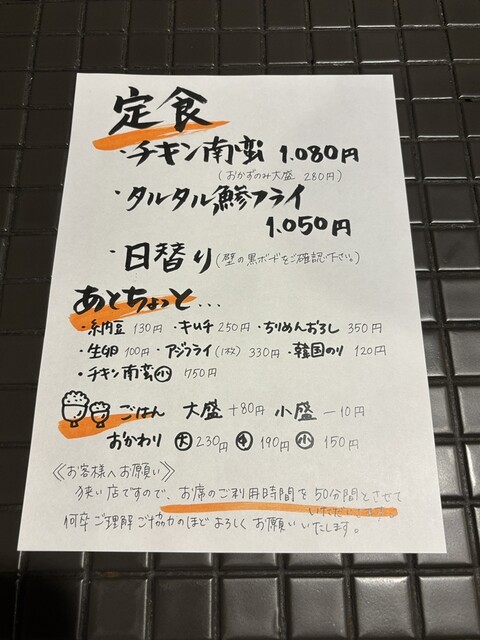 定食
・チキン南蛮 1.080円
(おかずのみ大盛 280円)
・タルタル鯵フライ
1.050円
・日替り(壁の黒ボードをご確認下さい。)
あとちょっと...
・納豆 130円 ・キムチ 250円 ・ちりめんおろし 350円
・生卵 100円 ・アジフライ(1枚) 330円 ・韓国のり 120円
・チキン南蛮小 750円
ごはん 大盛 +80円 小盛 -10円
おかわり 大 230円 中 190円 小 150円
《お客様へお願い》
狭い店ですので、お席のご利用時間を50分間とさせて
いただいてます。
何卒ご理解ご協力のほどよろしくお願いいたします。